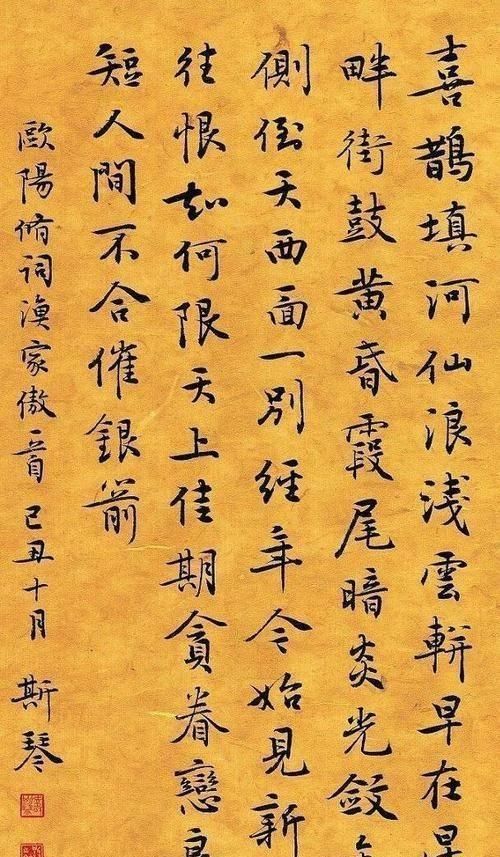 喜鵲填河仙浪淺雲軿早在星
畔街鼓黃昏霞尾暗炎光斂
側倒天西面一別經年今始見新
往恨知何限天上佳期貪眷戀良
短人間不合催銀箭
歐陽脩詞漁家傲一首 己丑十月 斯琴